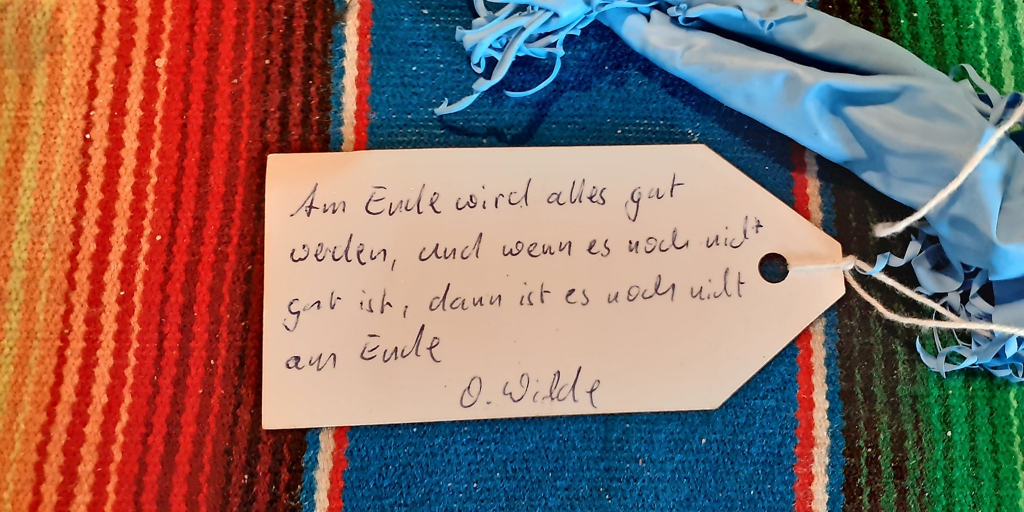 Am Ende wird alles gut
werden, und wenn es noch nicht
gut ist, dann ist es noch nicht
am Ende
O. Wilde